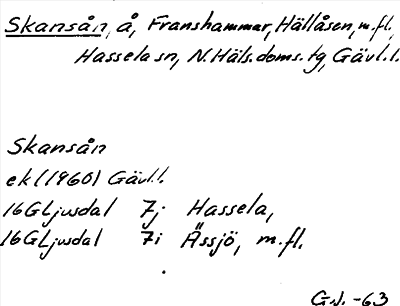 Skansån, å, Franshammar, Hällåsen, m.fl.,
Hassela sn, N.Häls.doms.tg, Gävl.l.
Skansån
ek (1960) Gävl.l.
16G Ljusdal 7j Hassela,
16G Ljusdal 7i Ässjö, m.fl.
G.J. -63